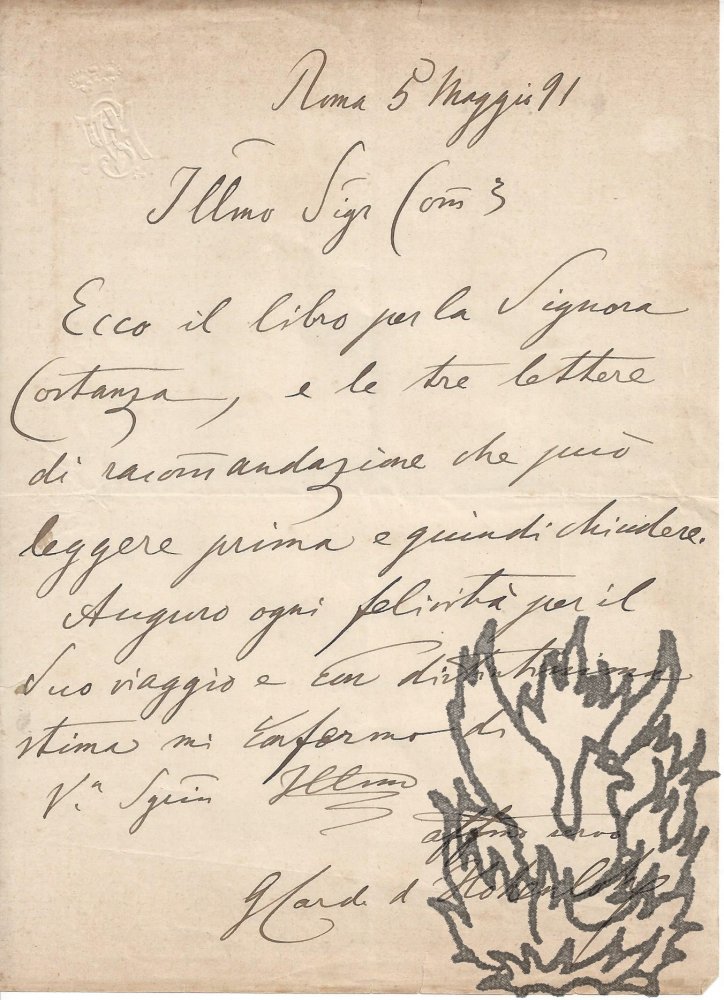 Roma 5 Maggio 91
Illmo Sigr Com̄
Ecco il libro per la Signora
Costanza, e le tre lettere
di racom̄andazione che può
leggere prima e quindi chiudere.
Auguro ogni felicità per il
Suo viaggio e con distintissima
stima mi confermo di
V.ª Illma
servo
G Card. d Hohenlohe